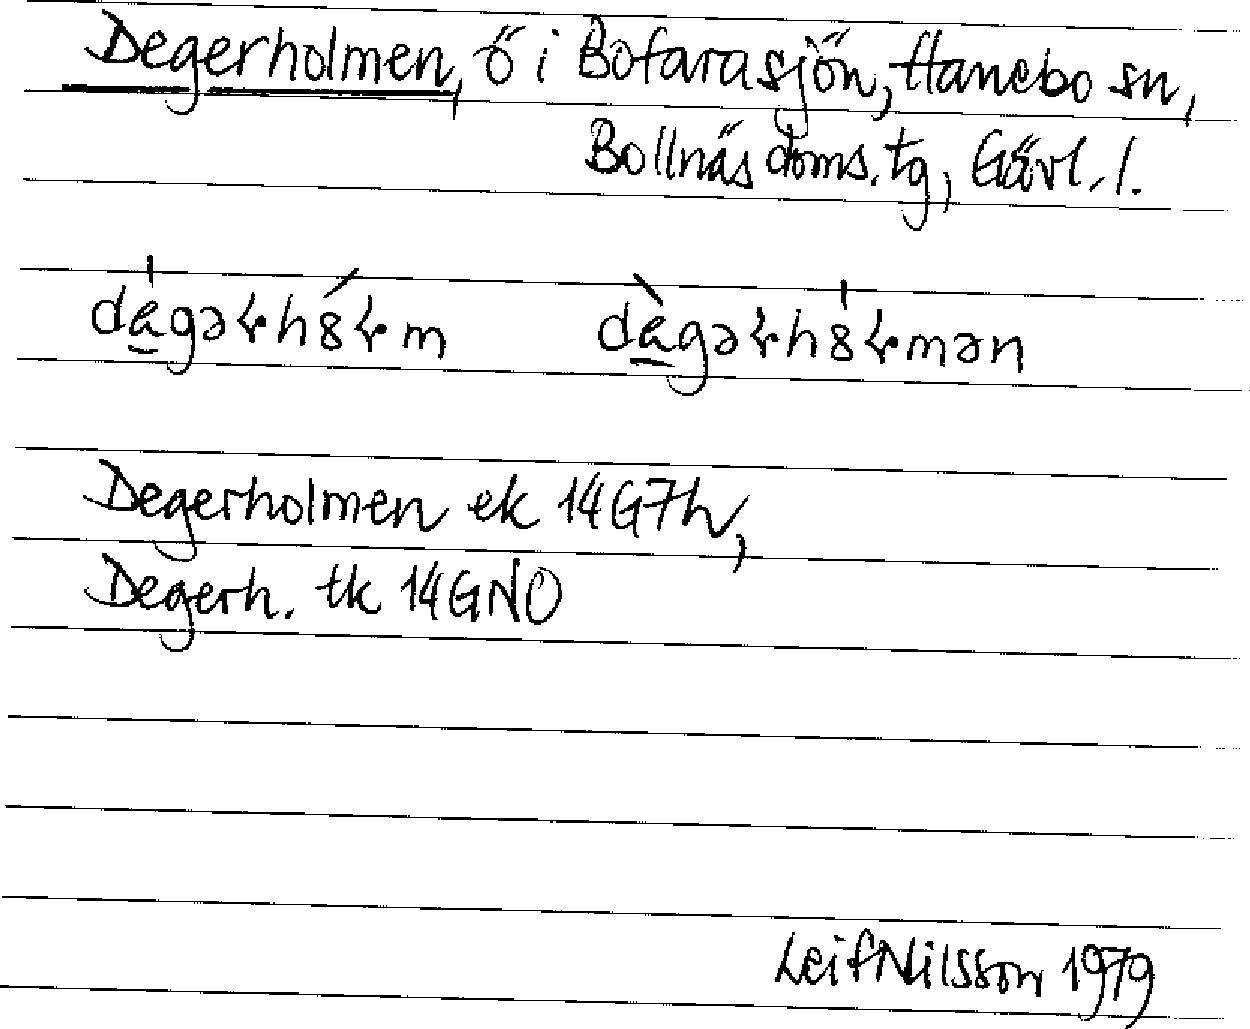 Degerholmen, ö i Bofarasjön, Hanebo sn,
Bollnäs doms. tg, Gävl. l.
Degerholmen ek 14G7h,
Degerh. tk 14GNO
Leif Nilsson 1979